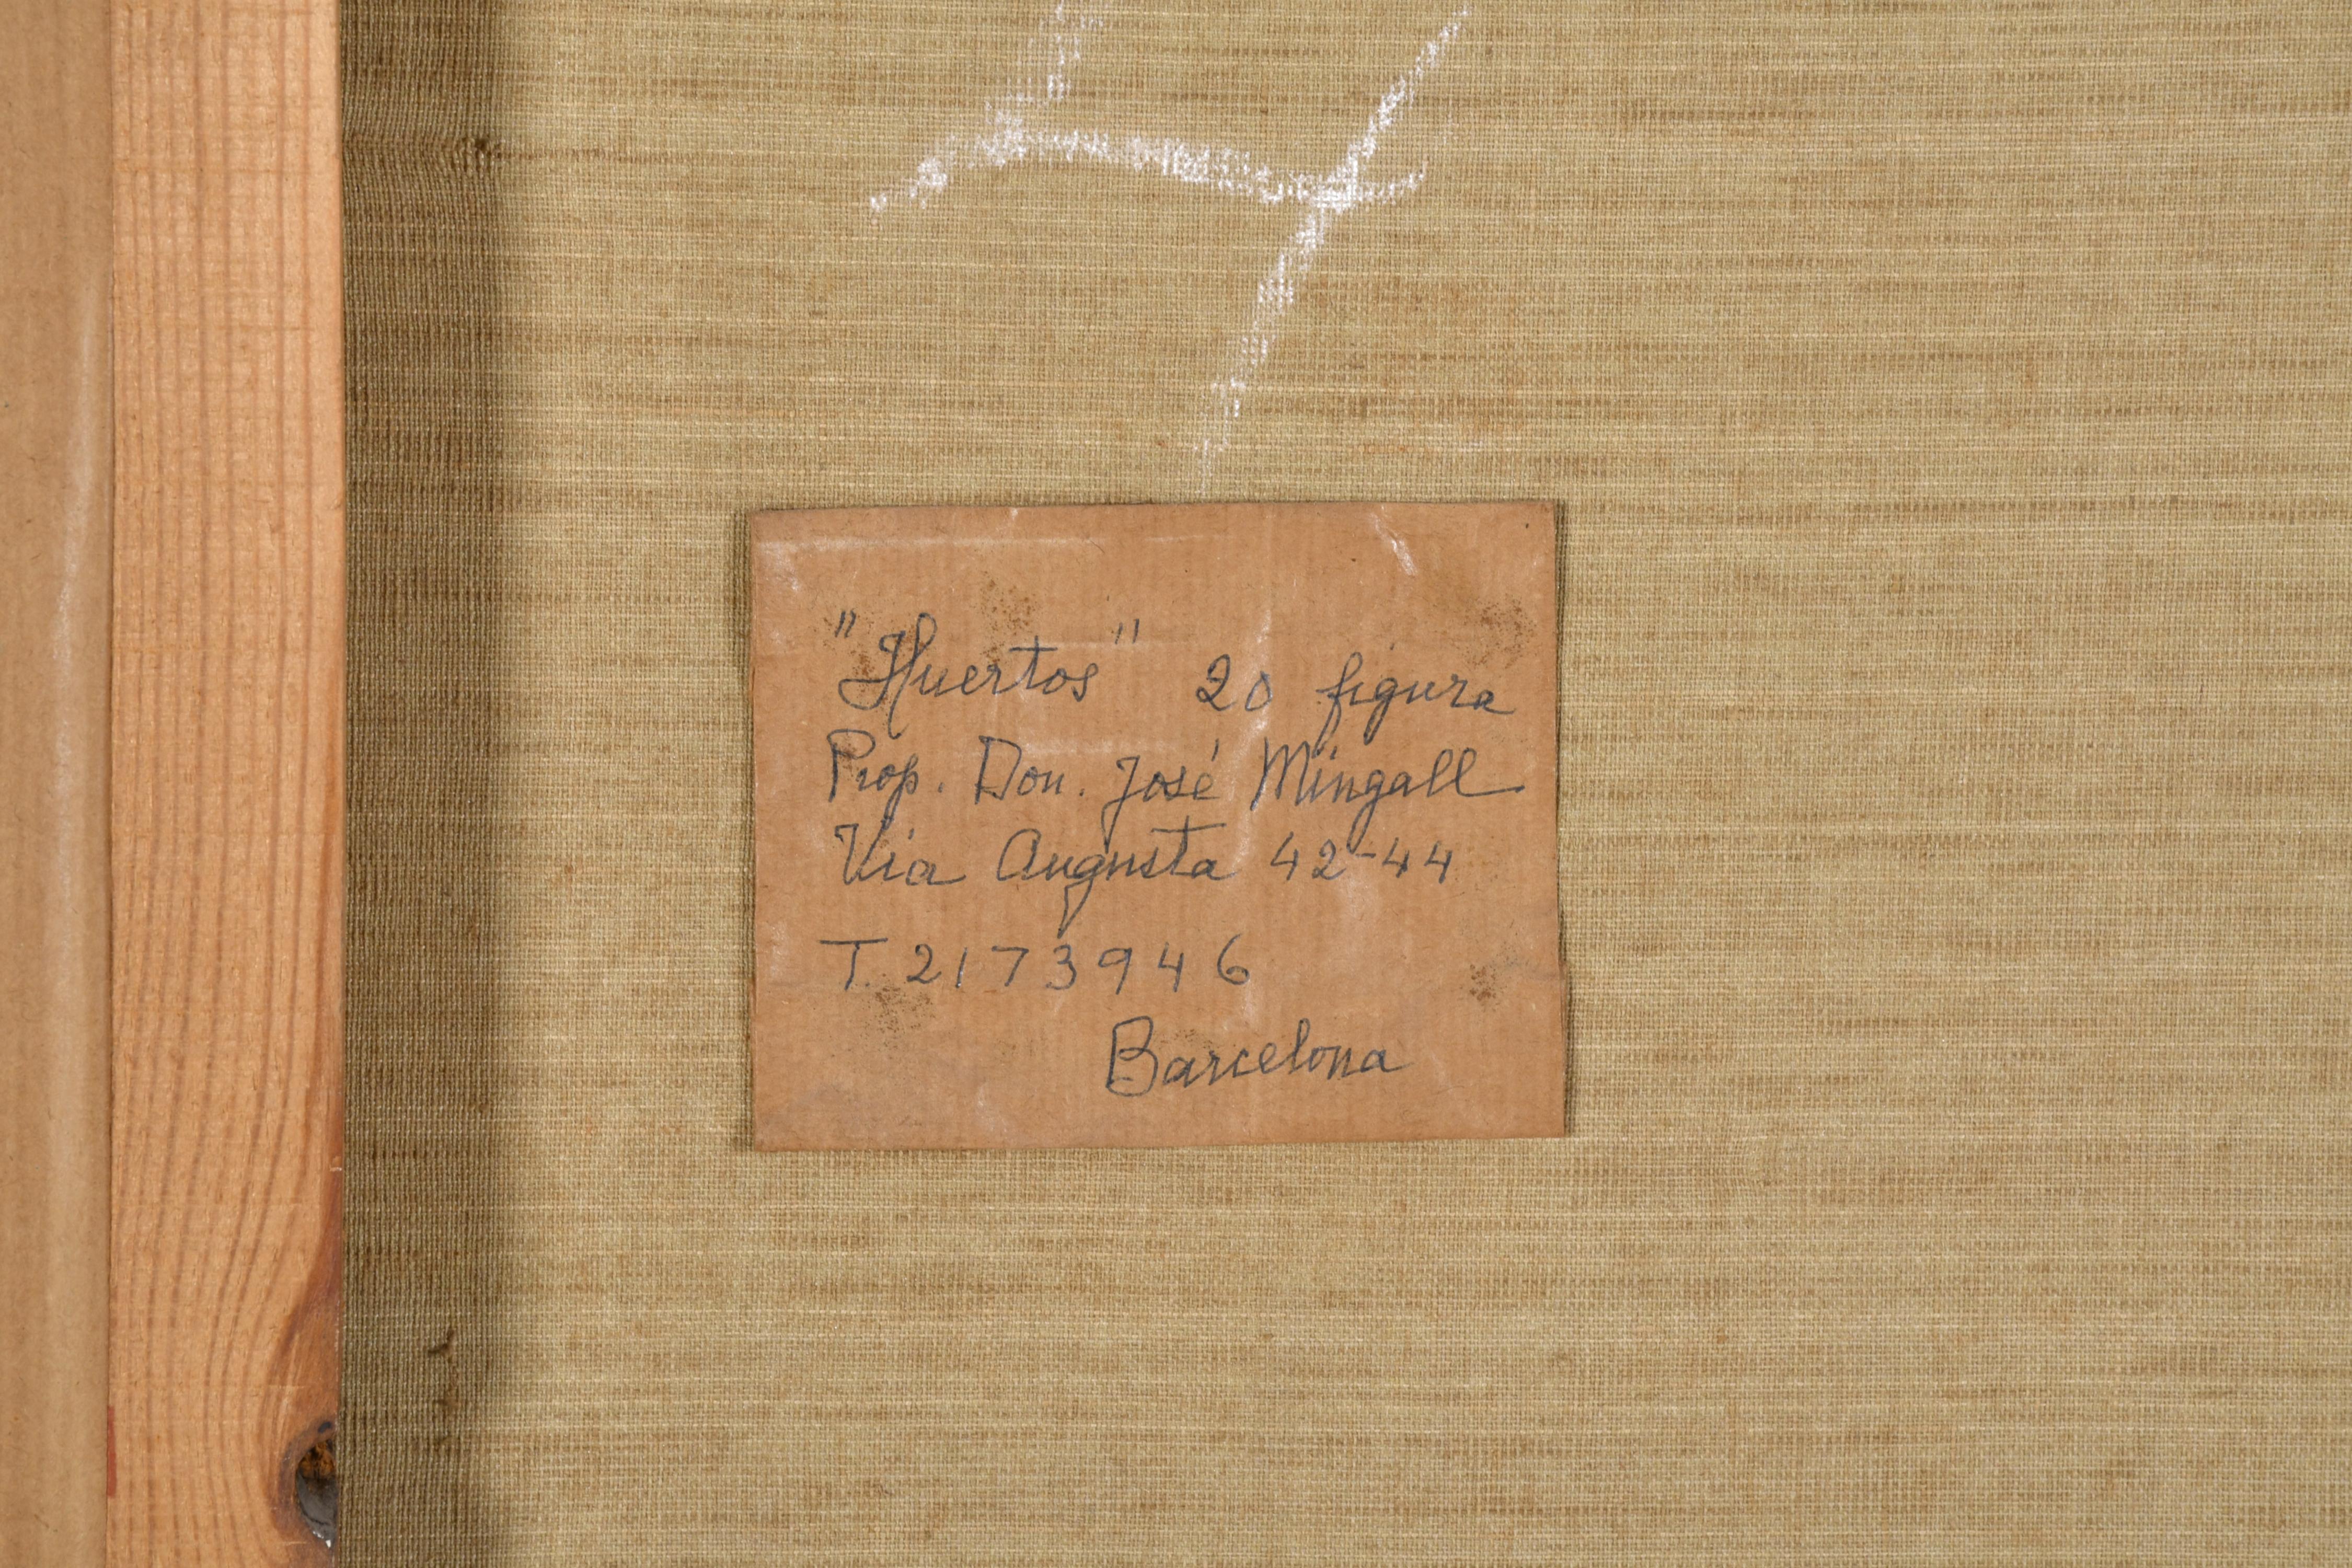 "Huertos" 20 figura
Prop. Don. José Mingall
Via Augusta 42-44
T. 2173946
Barcelona